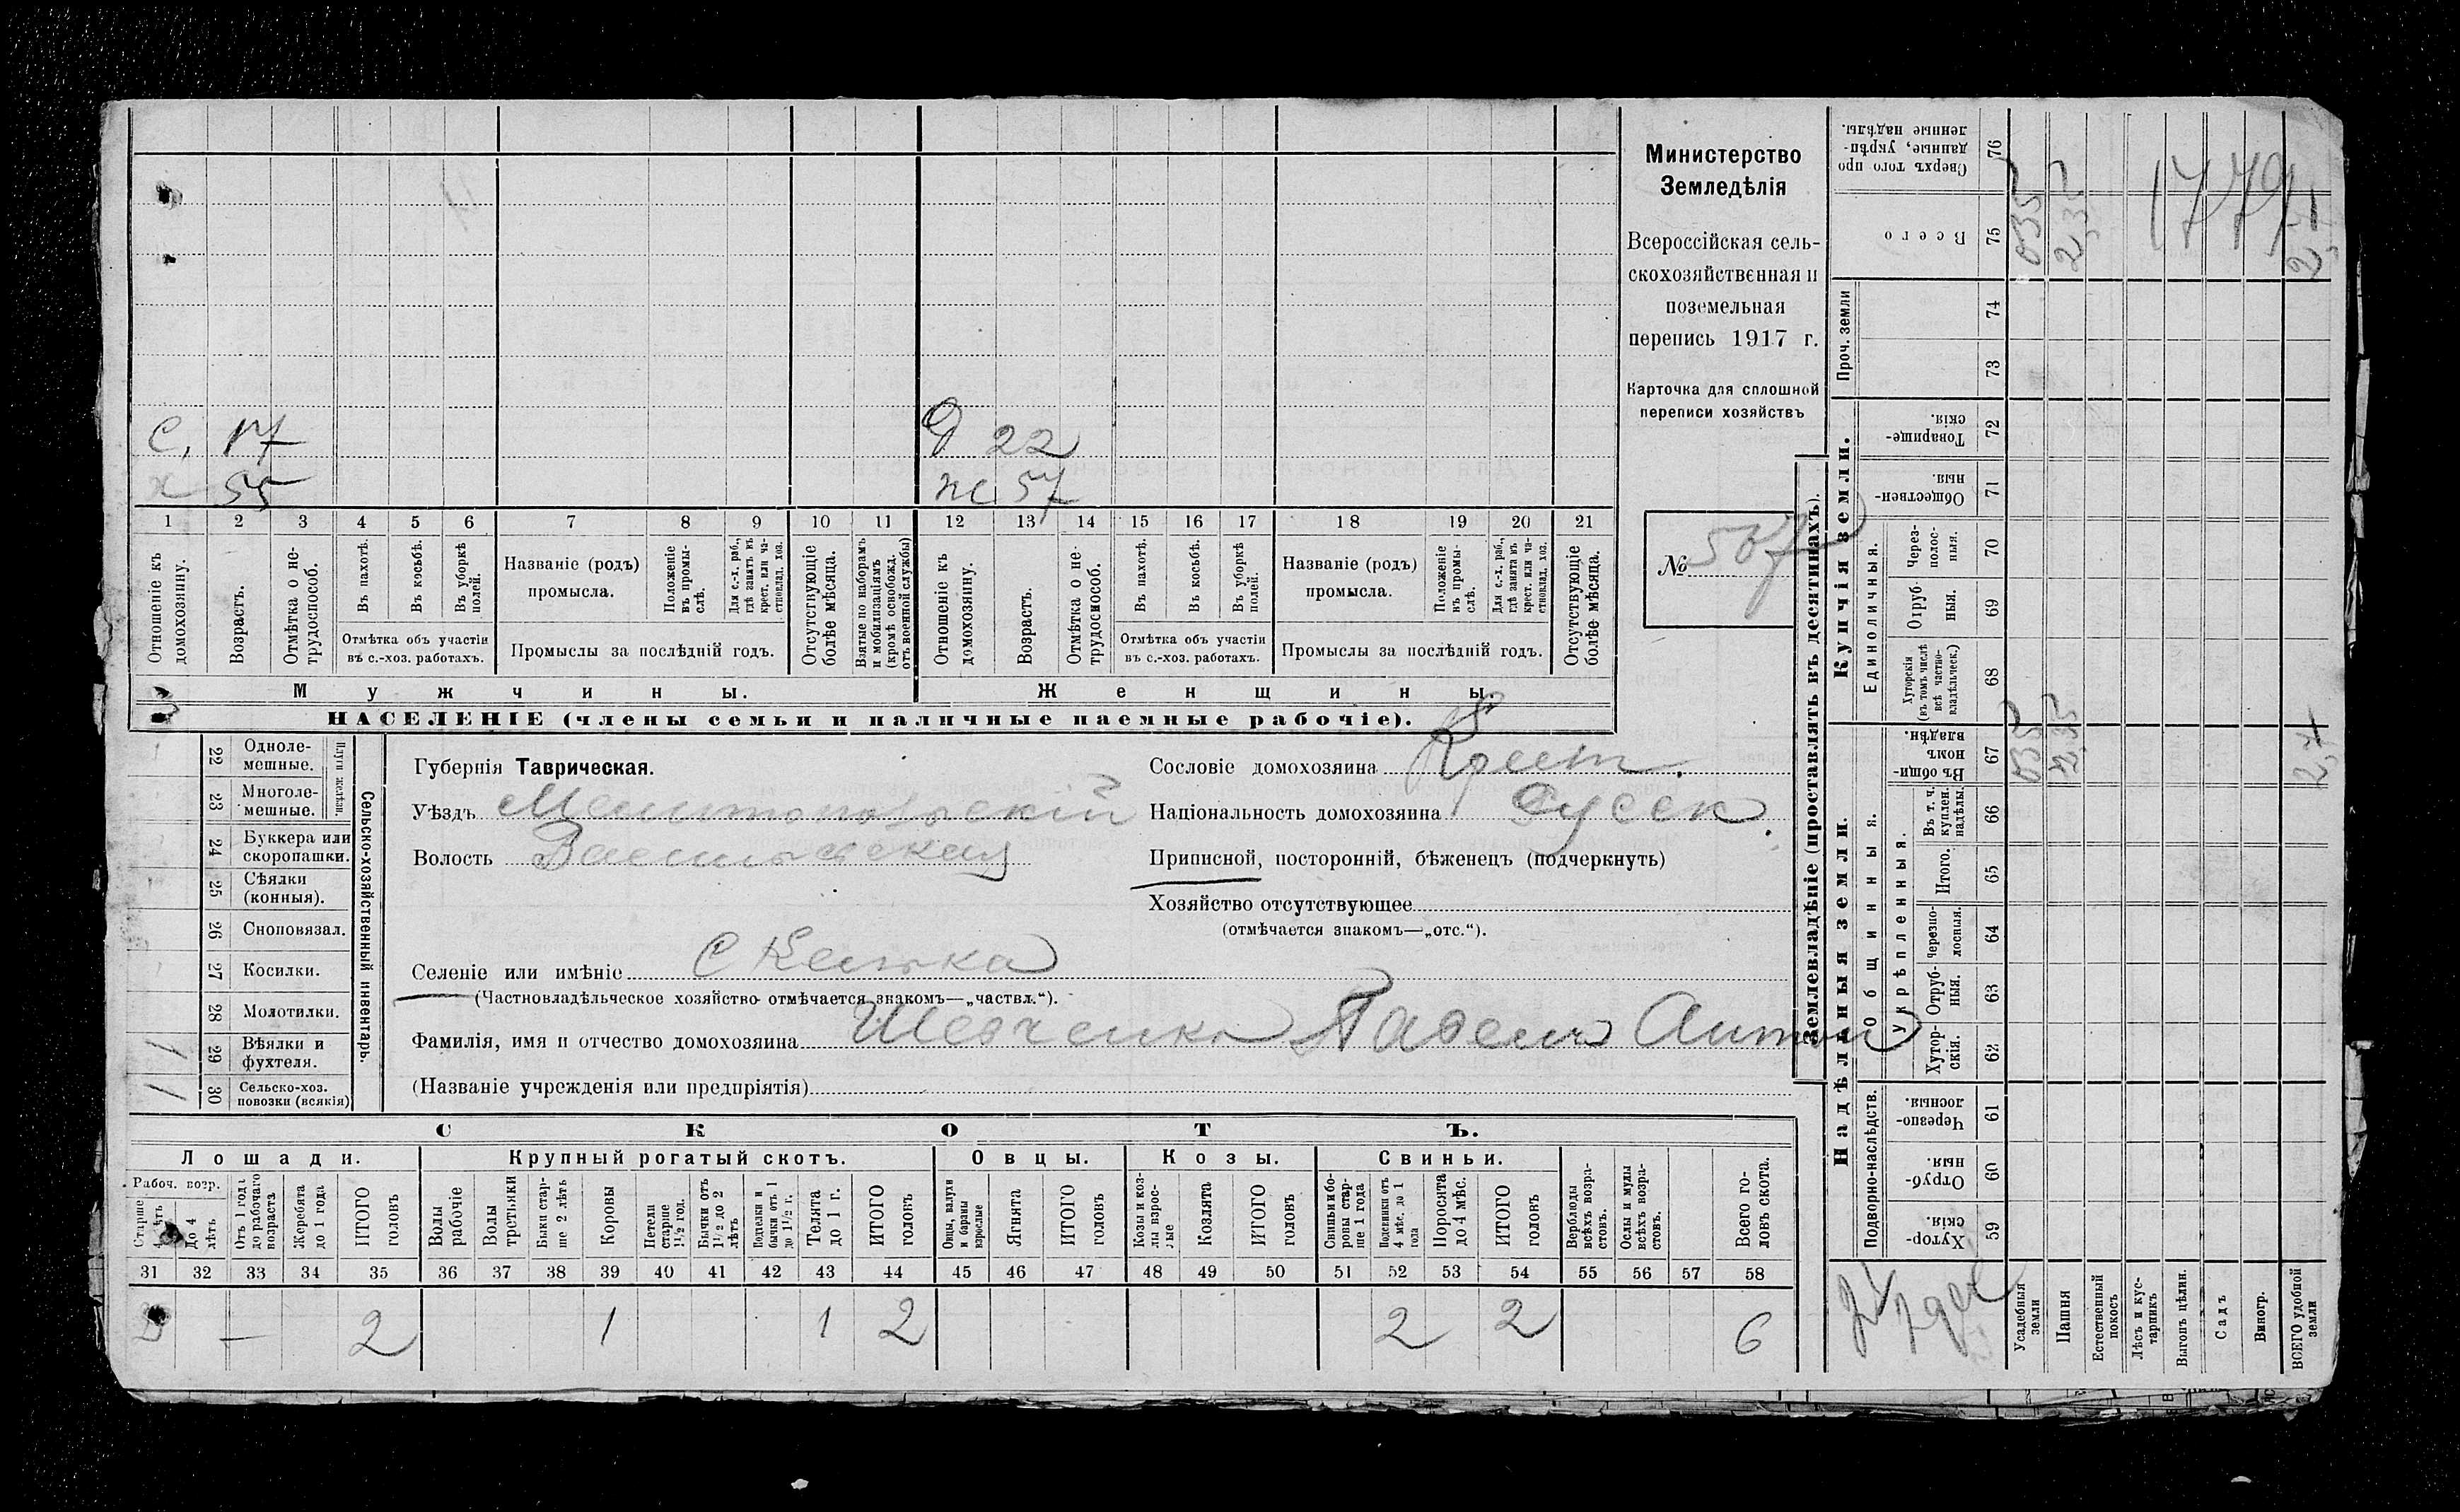 С. 17 Д 22
х 55 ж 57
1 2 3 4 5 6 7 8 9 10 11 12 13 14 15 16 17 18 19 20 21
Отношеніе къ домохозяину.
Возрастъ.
Отмѣтка о не-трудоспособ.
Въ пахотѣ.
Въ косьбѣ.
Въ уборкѣ полей.
Отмѣтка объ участіи
въ с.-хоз. работахъ.
Названіе (родъ)
промысла.
Положеніе въ промы-слѣ.
Для с.-х. раб., гдѣ занятъ въ крест. или ча-стновлад. хоз.
Промыслы за послѣдній годъ.
Отсутствующіе болѣе мѣсяца.
Взятые по наборамъ и мобилизаціямъ (кромѣ освобожд. отъ военной службы)
Отношеніе къ домохозяину.
Возрастъ.
Отмѣтка о не-трудоспособ.
Въ пахотѣ.
Въ косьбѣ.
Въ уборкѣ полей.
Отмѣтка объ участіи
въ с.-хоз. работахъ.
Названіе (родъ)
промысла.
Положеніе въ промы-слѣ.
Для с.-х. раб., гдѣ занята въ крест. или ча-стновлад. хоз.
Промыслы за послѣдній годъ.
Отсутствующіе болѣе мѣсяца.
Мужчины. Женщины.
НАСЕЛЕНІЕ (члены семьи и наличные наемные рабочіе).
Министерство
Земледѣлія
Всероссійская сель-
скохозяйственная и
поземельная
перепись 1917 г.
Карточка для сплошной
переписи хозяйствъ
№ 507
22 Одноле-мешные.
23 Многоле-мешные.
Плуги желѣзн.
24 Буккера или скоропашки.
25 Сѣялки (конныя).
26 Сноповязал.
27 Косилки.
28 Молотилки.
1 29 Вѣялки и фухтеля.
1 30 Сельско-хоз. повозки (всякія)
Сельско-хозяйственный инвентарь.
Губернія Таврическая.
Уѣздъ Мелитопольскій
Волость Васильевская
Сословіе домохозяина Крест.
Національность домохозяина Русск.
Приписной, посторонній, бѣженецъ (подчеркнуть)
Хозяйство отсутствующее
(отмѣчается знакомъ—„отс.“).
Селеніе или имѣніе Скелька
(Частновладѣльческое хозяйство отмѣчается знакомъ—„частвл.“).
Фамилія, имя и отчество домохозяина Шевченко Павелъ Антон
(Названіе учрежденія или предпріятія)
СКОТЪ.
Лошади. Крупный рогатый скотъ. Овцы. Козы. Свиньи.
Рабоч. возр.
Старше 4 лѣтъ
До 4 лѣтъ
Отъ 1 года до рабочаго возраста
Жеребята до 1 года
ИТОГО головъ
Волы рабочіе
Волы третьяки
Быки стар-ше 2 лѣтъ
Коровы
Нетели старше 1½ год.
Бычки отъ 1½ до 2 лѣтъ
Подтелки и бычки отъ 1 до 1½ г.
Телята до 1 г.
ИТОГО головъ
Овцы, валухи и бараны взрослые
Ягнята
ИТОГО головъ
Козы и коз-лы взрос-лые
Козлята
ИТОГО головъ
Свиньи и бо-ровы стар-ше 1 года
Подсвинки отъ 4 мѣс. до 1 года
Поросята до 4 мѣс.
ИТОГО головъ
Верблюды всѣхъ возра-стовъ.
Ослы и мулы всѣхъ возра-стовъ.
Всего го-ловъ скота.
31 32 33 34 35 36 37 38 39 40 41 42 43 44 45 46 47 48 49 50 51 52 53 54 55 56 57 58
2 — 2 1 1 2 2 2 6
Землевладѣніе (проставлять въ десятинахъ).
Купчія земли.
Надѣльныя земли.
Сверхъ того про данные, укрѣп-ленные надѣлы. 76
Всего 75
Проч. земли
74
73
Товарище-скія. 72
Обществен-ныя. 71
Единоличныя.
Черезполос-ныя. 70
Отруб-ныя. 69
Хуторскія (въ томъ числѣ всѣ частно-владѣльческ.) 68
Въ общин-номъ владѣн. 67
Общинныя.
Укрѣпленныя.
Въ т. ч. куплен. надѣлы. 66
Итого. 65
Черезпо-лосныя. 64
Отруб-ныя. 63
Хутор-скія. 62
Подворно-наслѣдств.
Черезпо-лосныя. 61
Отруб-ныя. 60
Хутор-скія. 59
Усадебныя земли
Пашня
Естественный покосъ
Лѣсъ и кус-тарникъ
Выгонъ цѣлин.
Садъ
Виногр.
ВСЕГО удобной земли
1779